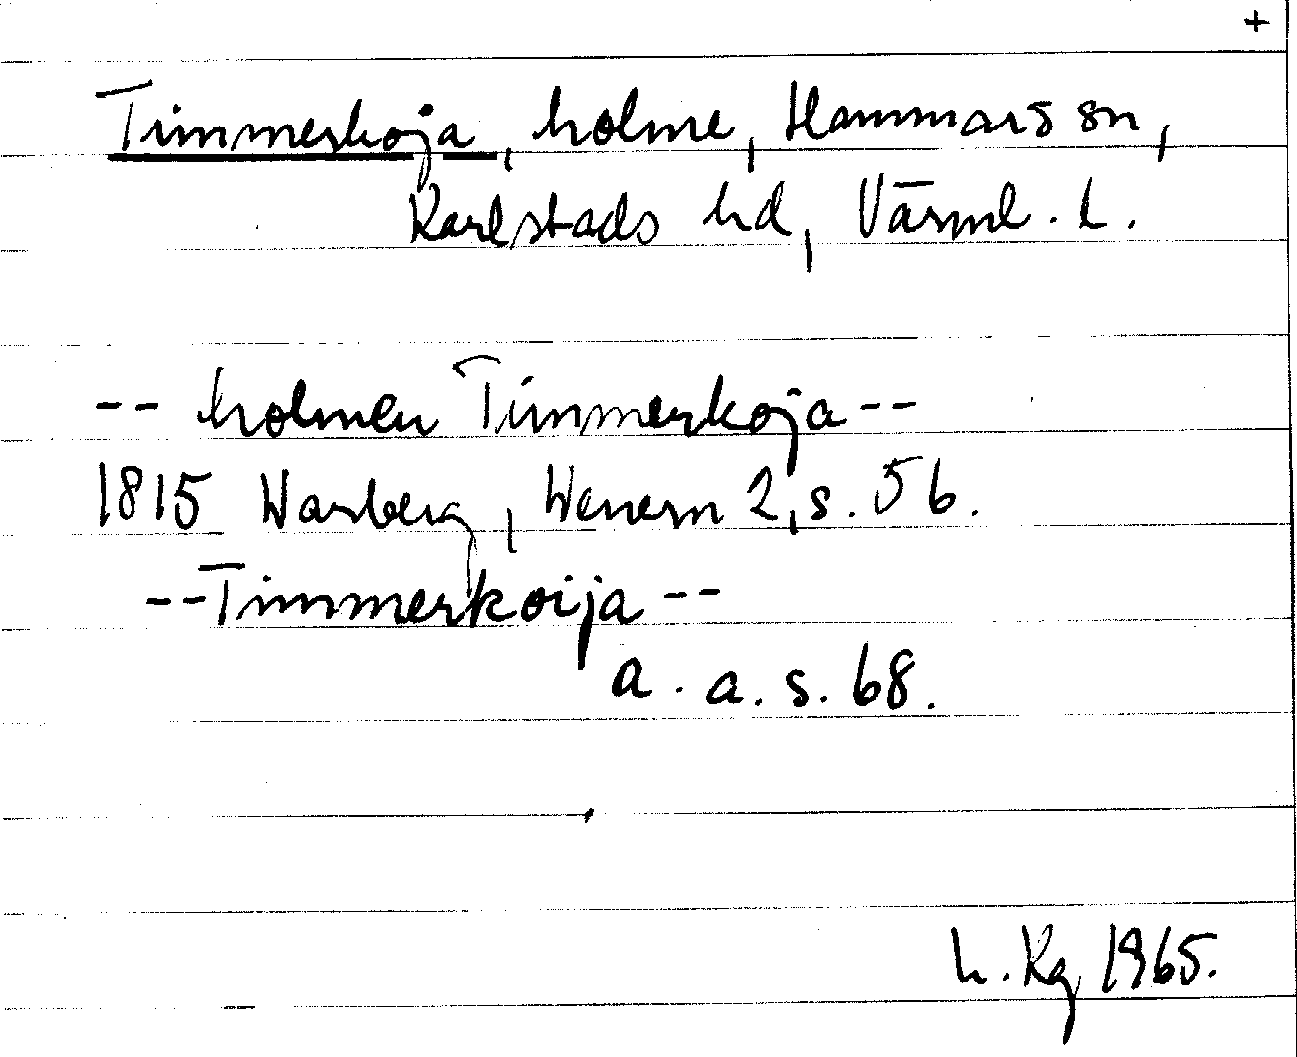 +
Timmerkoja, holme, Hammarö sn,
Karlstads hd, Värml. L.
-- holmen Timmerkoja --
1815 Warberg, Wenern 2, s. 56.
-- Timmerkoija --
a. a. s. 68.
h. Kg 1965.